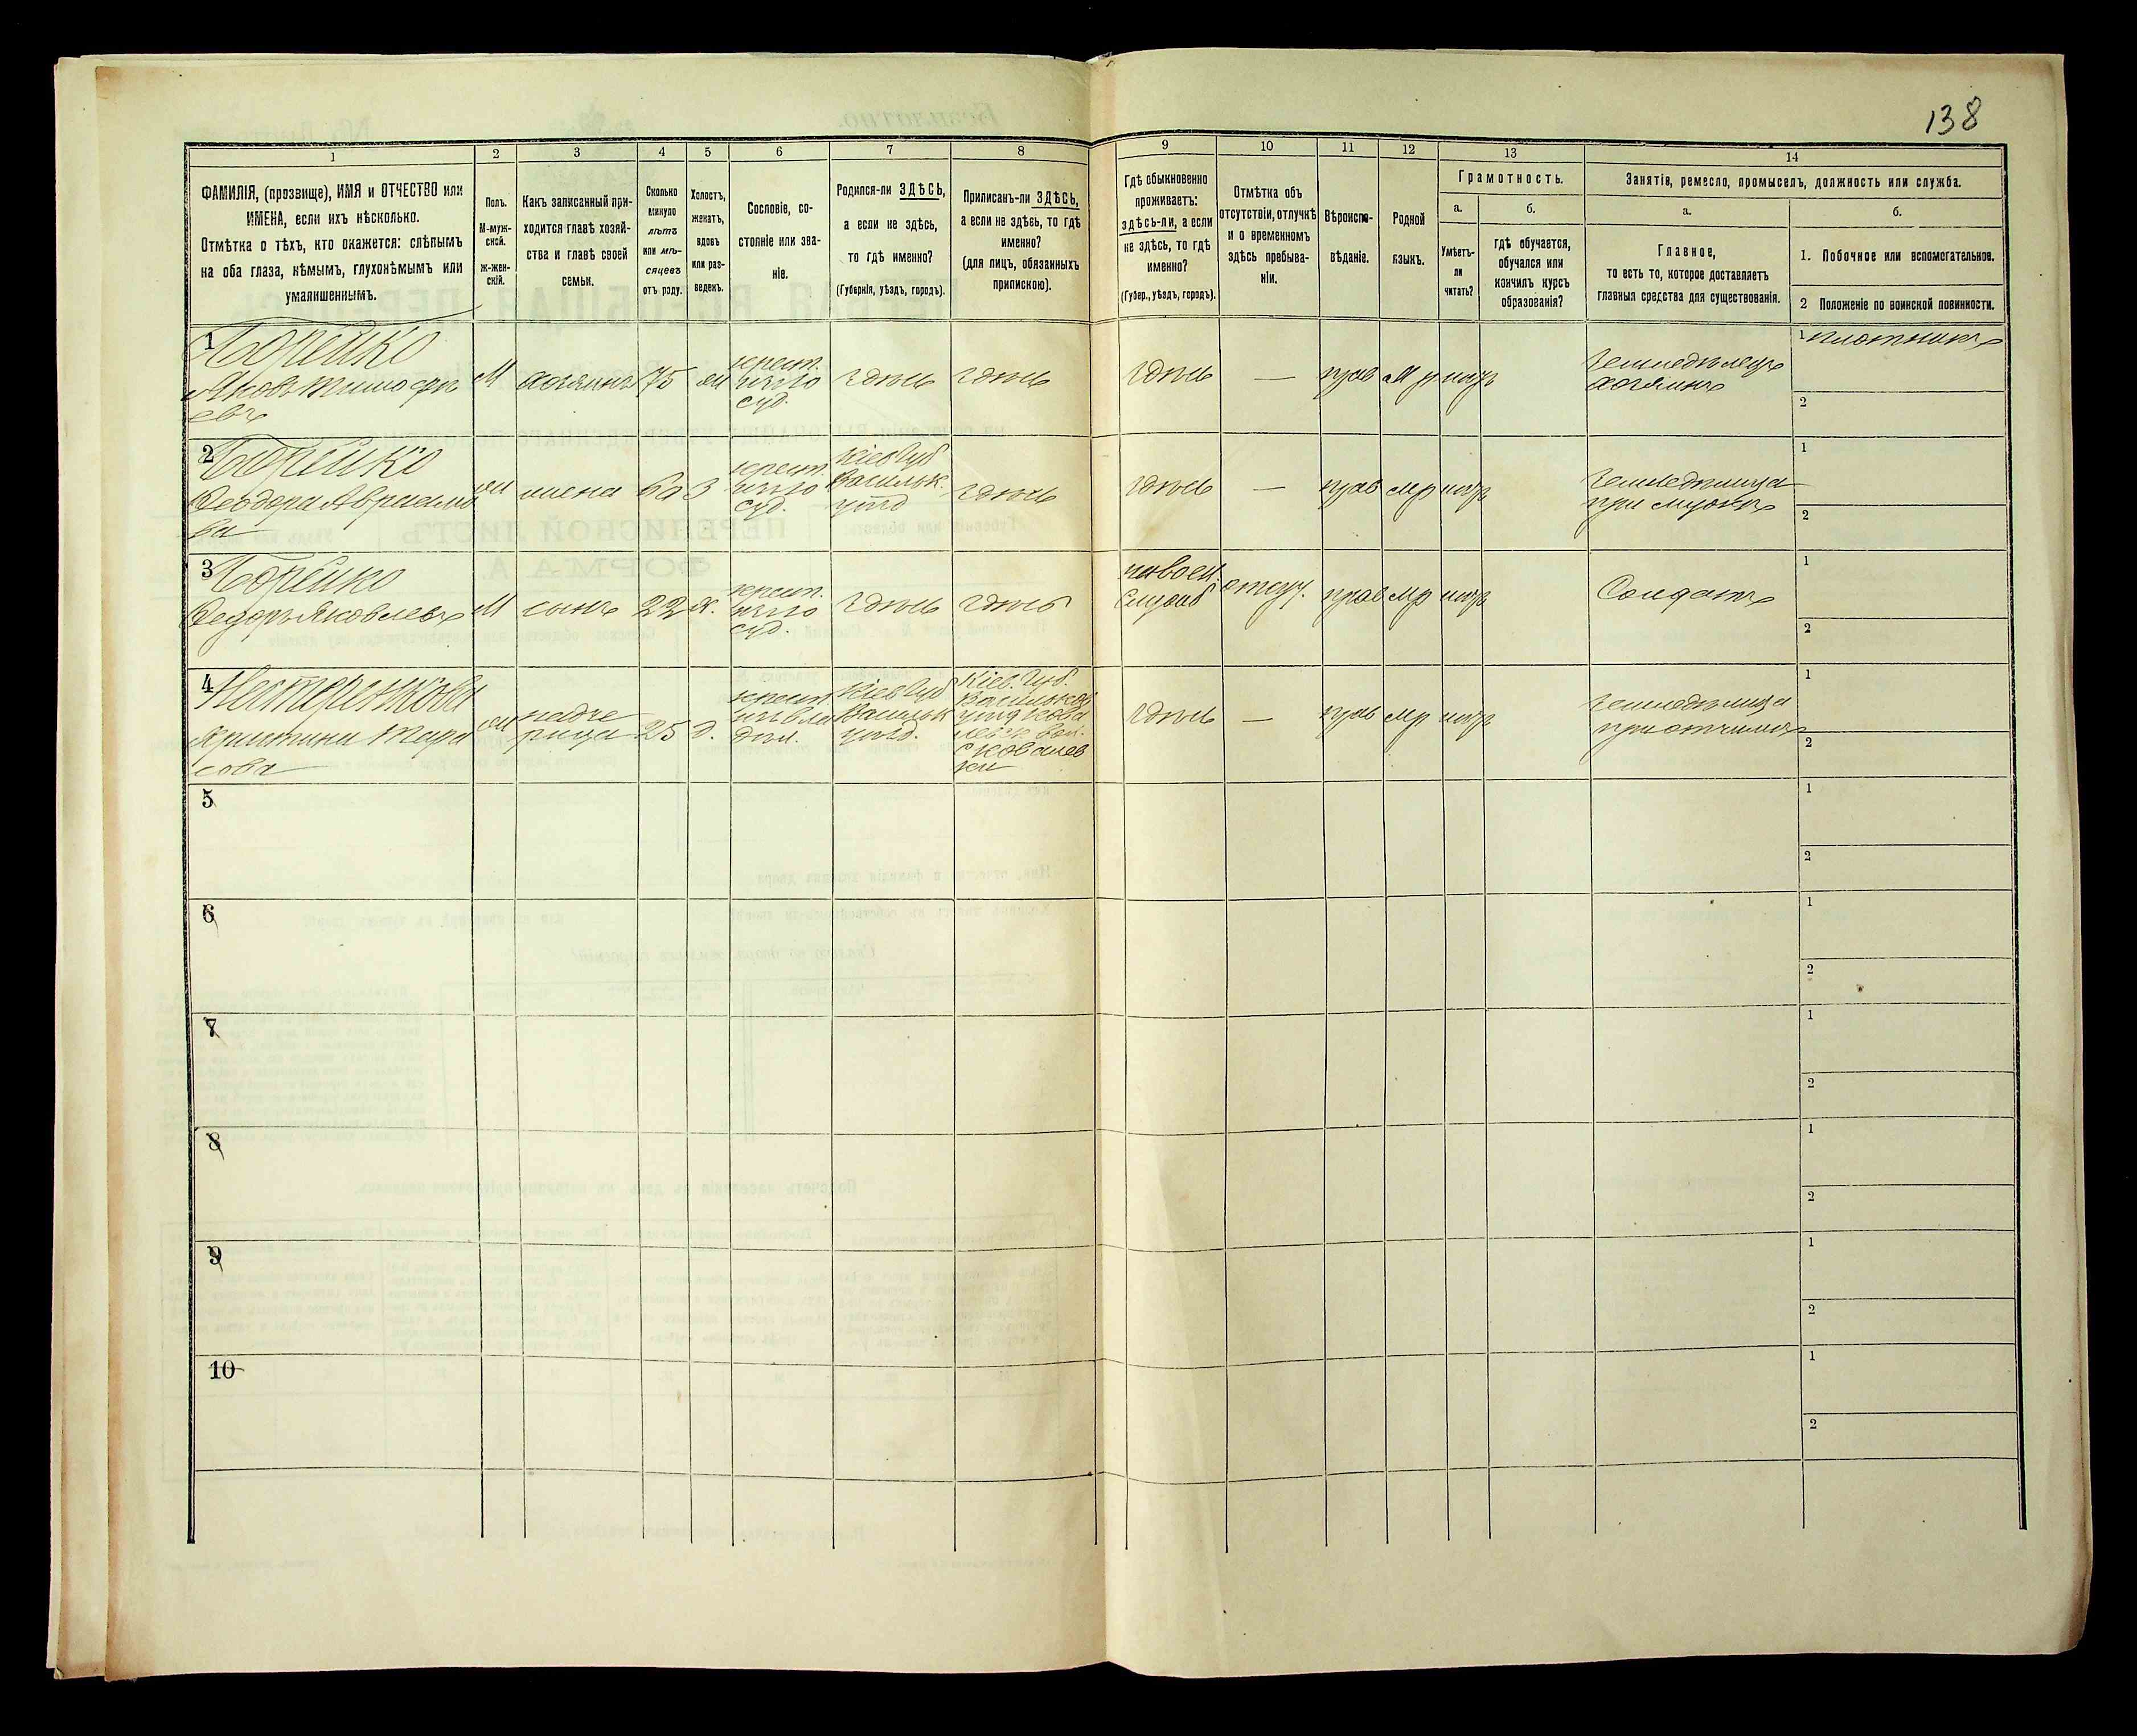 138
1
2
3
4
5
6
7
8
9
10
11
12
13
14
ФАМИЛІЯ, (прозвище), ИМЯ и ОТЧЕСТВО или
ИМЕНА, если ихъ нѣсколько.
Отмѣтка о тѣхъ, кто окажется: слѣпымъ
на оба глаза, нѣмымъ, глухонѣмымъ или
умалишеннымъ.
Полъ.
М-муж-
ской.
ж-жен-
скій.
Какъ записанный при-
ходится главѣ хозяй-
ства и главѣ своей
семьи.
Сколько
минуло
лѣтъ
или мѣ-
сяцевъ
отъ роду.
Холостъ,
женатъ,
вдовъ
или раз-
веденъ.
Сословіе, со-
стояніе или зва-
ніе.
Родился-ли ЗДѢСЬ,
а если не здѣсь,
то гдѣ именно?
(Губернія, уѣздъ, городъ).
Приписанъ-ли ЗДѢСЬ,
а если не здѣсь, то гдѣ
именно?
(для лицъ, обязанныхъ
припискою).
Гдѣ обыкновенно
проживаетъ:
здѣсь-ли, а если
не здѣсь, то гдѣ
именно?
(Губер., уѣздъ, городъ).
Отмѣтка объ
отсутствіи, отлучкѣ
и о временномъ
здѣсь пребыва-
ніи.
Вѣроиспо-
вѣданіе.
Родной
языкъ.
Грамотность.
а.
б.
Умѣетъ-
ли
читать?
гдѣ обучается,
обучался или
кончилъ курсъ
образованія?
Занятіе, ремесло, промыселъ, должность или служба.
а.
б.
Главное,
то есть то, которое доставляетъ
главныя средства для существованія.
1. Побочное или вспомогательное.
2 Положеніе по воинской повинности.
1
Яковъ Тимофѣ
евъ
М
хозяинъ
75
крест.
изъ го
суд.
здѣсь
здѣсь
здѣсь
—
прав
м р
нѣтъ
Земледѣлецъ
хозяинъ
1 плотникъ
2
2
Феодора Авраамо
ва
жена
60
З
крест.
изъ го
суд.
Кіев Губ
Васильк.
уѣзд
здѣсь
здѣсь
—
прав
мр
нѣтъ
Земледѣлица
при мужѣ
1
2
3
Федоръ Яковлевъ
М
сынъ
22
х.
крест.
изъ го
суд.
здѣсь
здѣсь
на воен.
Службѣ
отлуч.
прав
мр
нѣтъ
Солдатъ
1
2
4
Нестеренкова
Христина Тара
сова
падче
рица
25
д.
крест
изъ вла
дѣл.
Кіев Губ
Васильк
уѣзд.
Кіев. Губ.
Васильков
уѣзд Кова
левск вол.
с Ковалев
ки
здѣсь
—
прав
мр
нѣтъ
Земледѣлица
при отчимѣ
1
2
5
1
2
6
1
2
7
1
2
8
1
2
9
1
2
10
1
2